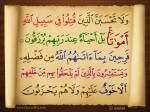 وَلَا تَحْسَبَنَّ الَّذِينَ قُتِلُوا فِي سَبِيلِ اللَّهِ
أَمْوَاتًا بَلْ أَحْيَاءٌ عِنْدَ رَبِّهِمْ يُرْزَقُونَ
فَرِحِينَ بِمَا آتَاهُمُ اللَّهُ مِنْ فَضْلِهِ
وَيَسْتَبْشِرُونَ بِالَّذِينَ لَمْ يَلْحَقُوا بِهِمْ مِنْ خَلْفِهِمْ
أَلَّا خَوْفٌ عَلَيْهِمْ وَلَا هُمْ يَحْزَنُونَ